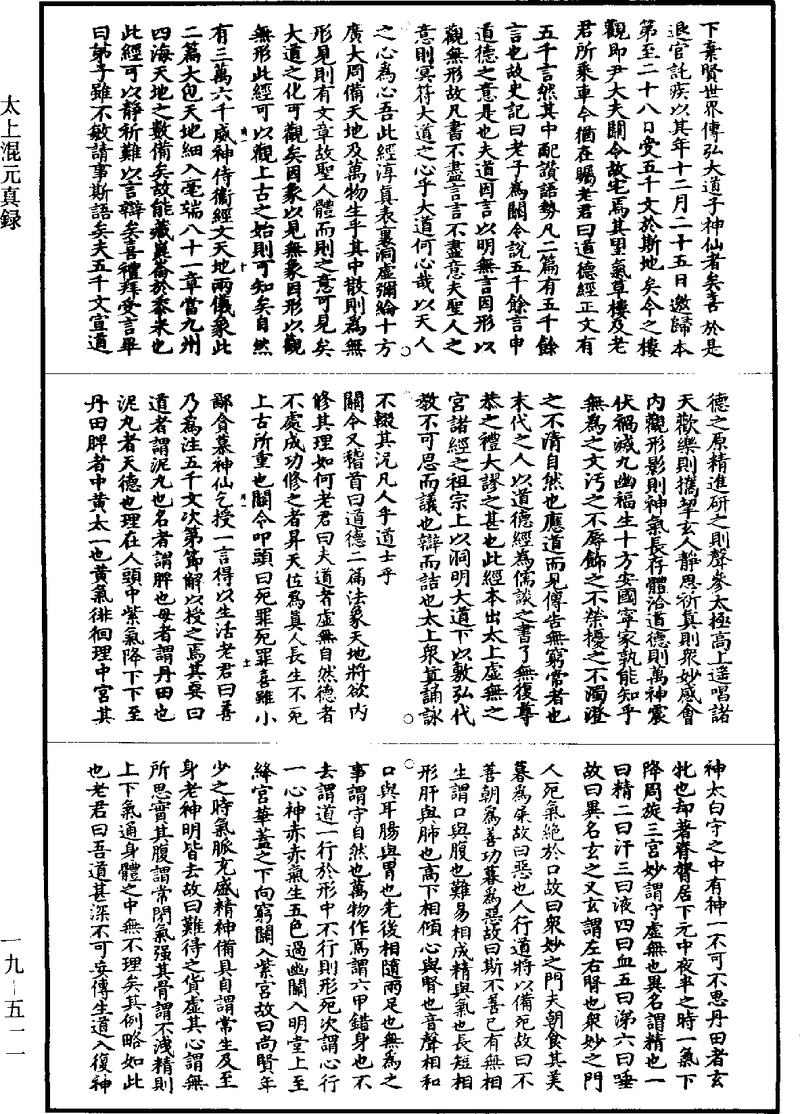 太上混元真録
一九－五一一
下棄賢世界傳弘大道子神仙者矣喜於是
退官託疾以其年十二月二十五日邀歸本
第至二十八日受五千文於斯地矣今之樓
觀即尹大夫關令故宅焉其望氣草樓及老
君所乘車今猶在矚老君曰道德經正文有
五千言然其中配讚語勢凡二篇有五千餘
言也故史記曰老子為關令說五千餘言申
道德之意是也夫道因言以明無言因形以
觀無形故凡書不盡言言不盡意夫聖人之
意則冥符大道之心乎大道何心哉以天人
之心為心吾此經淳真表裏洞虛彌綸十方
廣大罔備天地及萬物生乎其中散則為無
形見則有文章故聖人體而則之意可見矣
大道之化可觀矣因象以見無象因形以觀
無形此經可以觀上古之始則可知矣自然
有三萬六千威神侍衛經文天地兩儀象此
二篇大包天地細入毫端八十一章當九州
四海天地之數備矣故能藏崑崙於黍米也
此經可以靜祈難以言辯矣喜禮拜受言畢
曰弟子雖不敏請事斯語矣夫五千文宣道
德之原精進研之則聲參太極高上遥唱諸
天歡樂則攜挈玄人靜思衍真則衆妙感會
內觀形影則神氣長存體洽道德則萬神震
伏禍滅九幽福生十方安國寧家孰能知乎
無為之文汚之不辱飾之不榮擾之不濁澄
之不清自然也應道而見傳告無窮常者也
末代之人以道德經為儒談之書了無復尊
恭之禮大謬之甚也此經本出太上虛無之
宮諸經之祖宗上以洞明大道下以敷弘代
教不可思而議也辯而詰也太上衆真誦詠
不輟其況凡人乎道士乎
關令又稽首曰道德二篇法象天地將欲內
修其理如何老君曰夫道者虛無自然德者
不處成功修之者昇天位為真人長生不死
上古所重也關令叩頭曰死罪死罪喜雖小
鄙貪慕神仙乞授一言得以生活老君曰善
乃為注五千文次第篇解以授之焉其要曰
道者謂泥丸也名者謂脾也母者謂丹田也
泥丸者天德也理在人頭中紫氣降下下至
丹田脾者中黄太一也黄氣徘徊理中宮其
神太白守之中有神一不可不思丹田者玄
牝也却著脊膂居下元中夜半之時一氣下
降周旋三宮妙謂守虛無也異名謂精也一
曰精二曰汗三曰液四曰血五曰涕六曰唾
故曰異名玄之又玄謂左右腎也衆妙之門
人死氣絕於口故曰衆妙之門夫朝食其美
暮為屎故曰惡也人行道將以備死故曰不
善朝為善功暮為惡故曰斯不善已有無相
生謂口與腹也難易相成精與氣也長短相
形肝與肺也高下相傾心與腎也音聲相和
口與耳腸與胃也先後相隨兩足也無為之
事謂守自然也萬物作焉謂六甲錯身也不
去謂道一行於形中不行則形死次謂心行
一心神赤赤氣生五色過幽關入明堂上至
絳宮華蓋之下向窮關入紫宮故曰尚賢年
少之時氣脈充盛精神備具自謂常生及至
身老神明皆去故曰難得之貨虛其心謂無
所思實其腹謂常閉氣强其骨謂不洩精則
上下氣通身體之中無不理矣其例略如此
也老君曰吾道甚深不可妄傳生道入復神